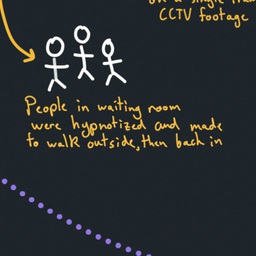 CCTV footage
People in waiting room
were hypnotized and made
to walk outside, then back in